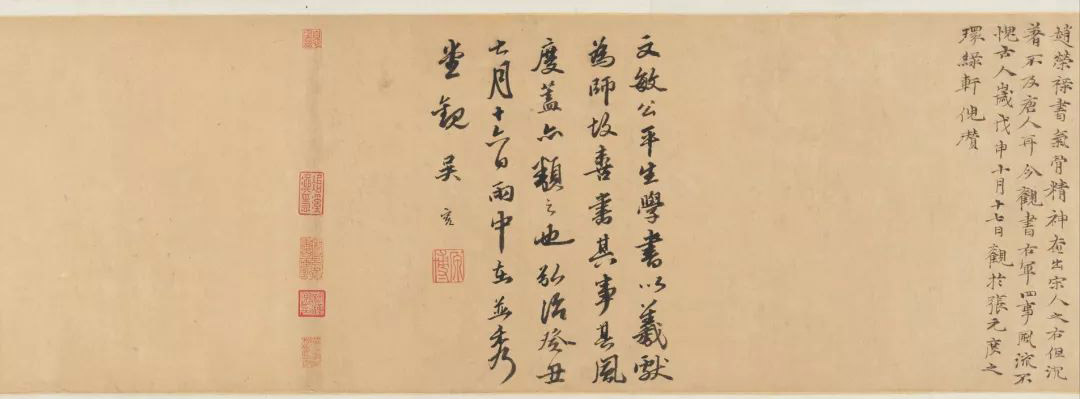 趙榮祿書氣骨精神直出宋人之右但沉
著不及唐人耳今觀書右軍四事風流不
愧古人歲戊申十月十七日觀於張元度之
環綠軒倪瓚
文敏公平生學書以羲獻
為師故喜書其事其風
度蓋亦類之也弘治癸丑
七月十六日雨中在並秀
堂觀 吴寬
原博